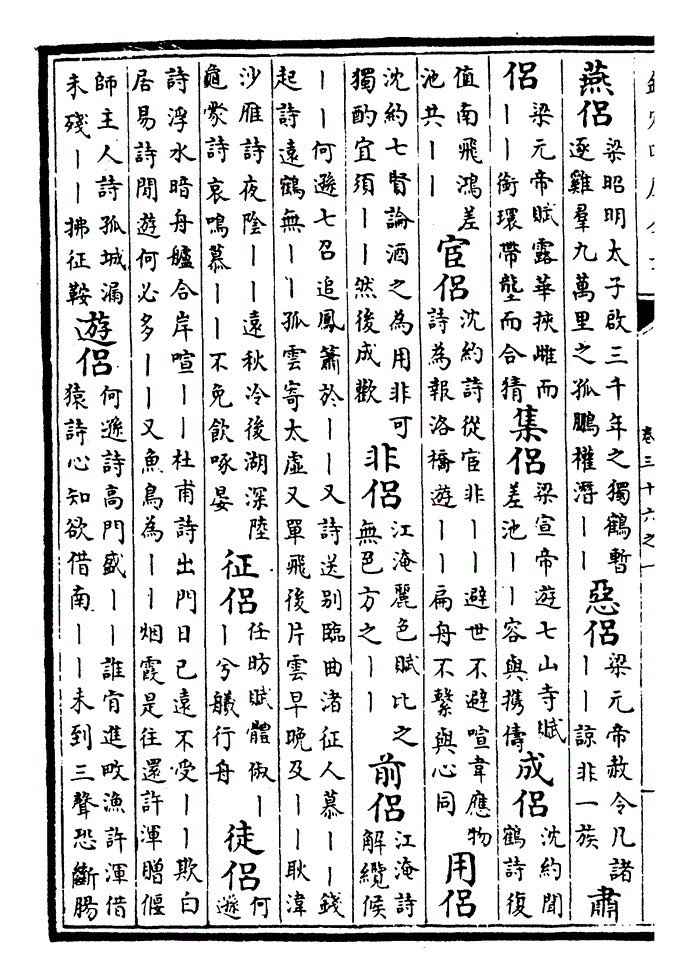 卷三十六之一
燕侶梁昭明太子啟三千年之獨鶴暫逐雞羣九萬里之孤鵬權潛丨丨惡侶梁元帝赦令凡諸丨丨諒非一族肅
侶梁元帝賦露華挾雌而丨丨銜環帶壟而合猜集侶梁宣帝遊七山寺賦差池丨丨容與攜儔成侶沈約聞鶴詩復
值南飛鴻差池共丨丨宦侶沈約詩從宦非丨丨避世不避喧韋應物詩為報洛橋遊丨丨扁舟不繫與心同用侶
沈約七賢論酒之為用非可獨酌宜須丨丨然後成歡非侶江淹麗色賦比之無邑方之丨丨前侶江淹詩解纜候
丨丨何遜七召追鳳簫於丨丨又詩送別臨曲渚征人慕丨丨錢起詩遠鶴無丨丨孤雲寄太虛又單飛後片雲早晚及丨丨耿湋
沙雁詩夜陰丨丨遠秋冷後湖深陸龜蒙詩哀鳴慕丨丨不免飲啄晏征侶任昉賦體俶丨丨兮艤行舟徒侶何遜
詩浮水暗舟艫合岸喧丨丨杜甫詩出門日已遠不受丨丨欺白居易詩閒遊何必多丨丨又魚鳥為丨丨烟霞是往還許渾贈偃
師主人詩孤城漏未殘丨丨拂征鞍遊侶何遜詩高門盛丨丨誰肯進畋漁許渾借猿詩心知欲借南丨丨未到三聲恐斷腸